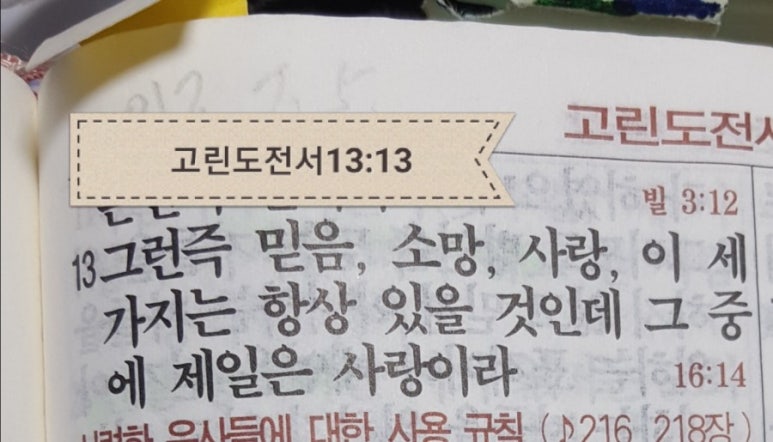 고린도전서
고린도전서13:13
빌 3:12
13그런즉 믿음, 소망, 사랑, 이 세
가지는 항상 있을 것인데 그 중
에 제일은 사랑이라
16:14
대한 사용 규칙 (♪216, 218장)